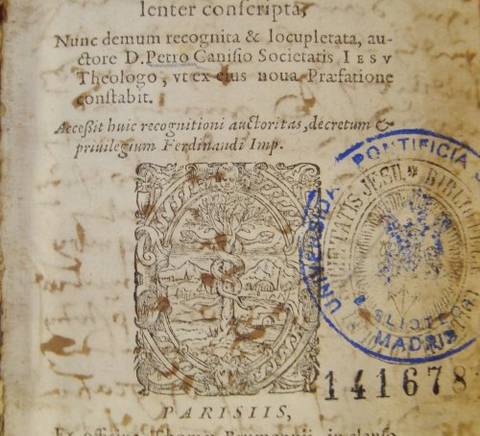 lenter conscripta,
Nunc demum recognita & locupletata, au-
ctore D. Petro Canisio Societatis IESV
Theologo, vt ex eius noua Præfatione
constabit.
Accessit huic recognitioni auctoritas, decretum &
priuilegium Ferdinandi Imp.
PONTIFICIA
BIBLIOTECA
MADRID
141678
PARISIIS,
Ex officina Thomæ Brumennii, in clauso